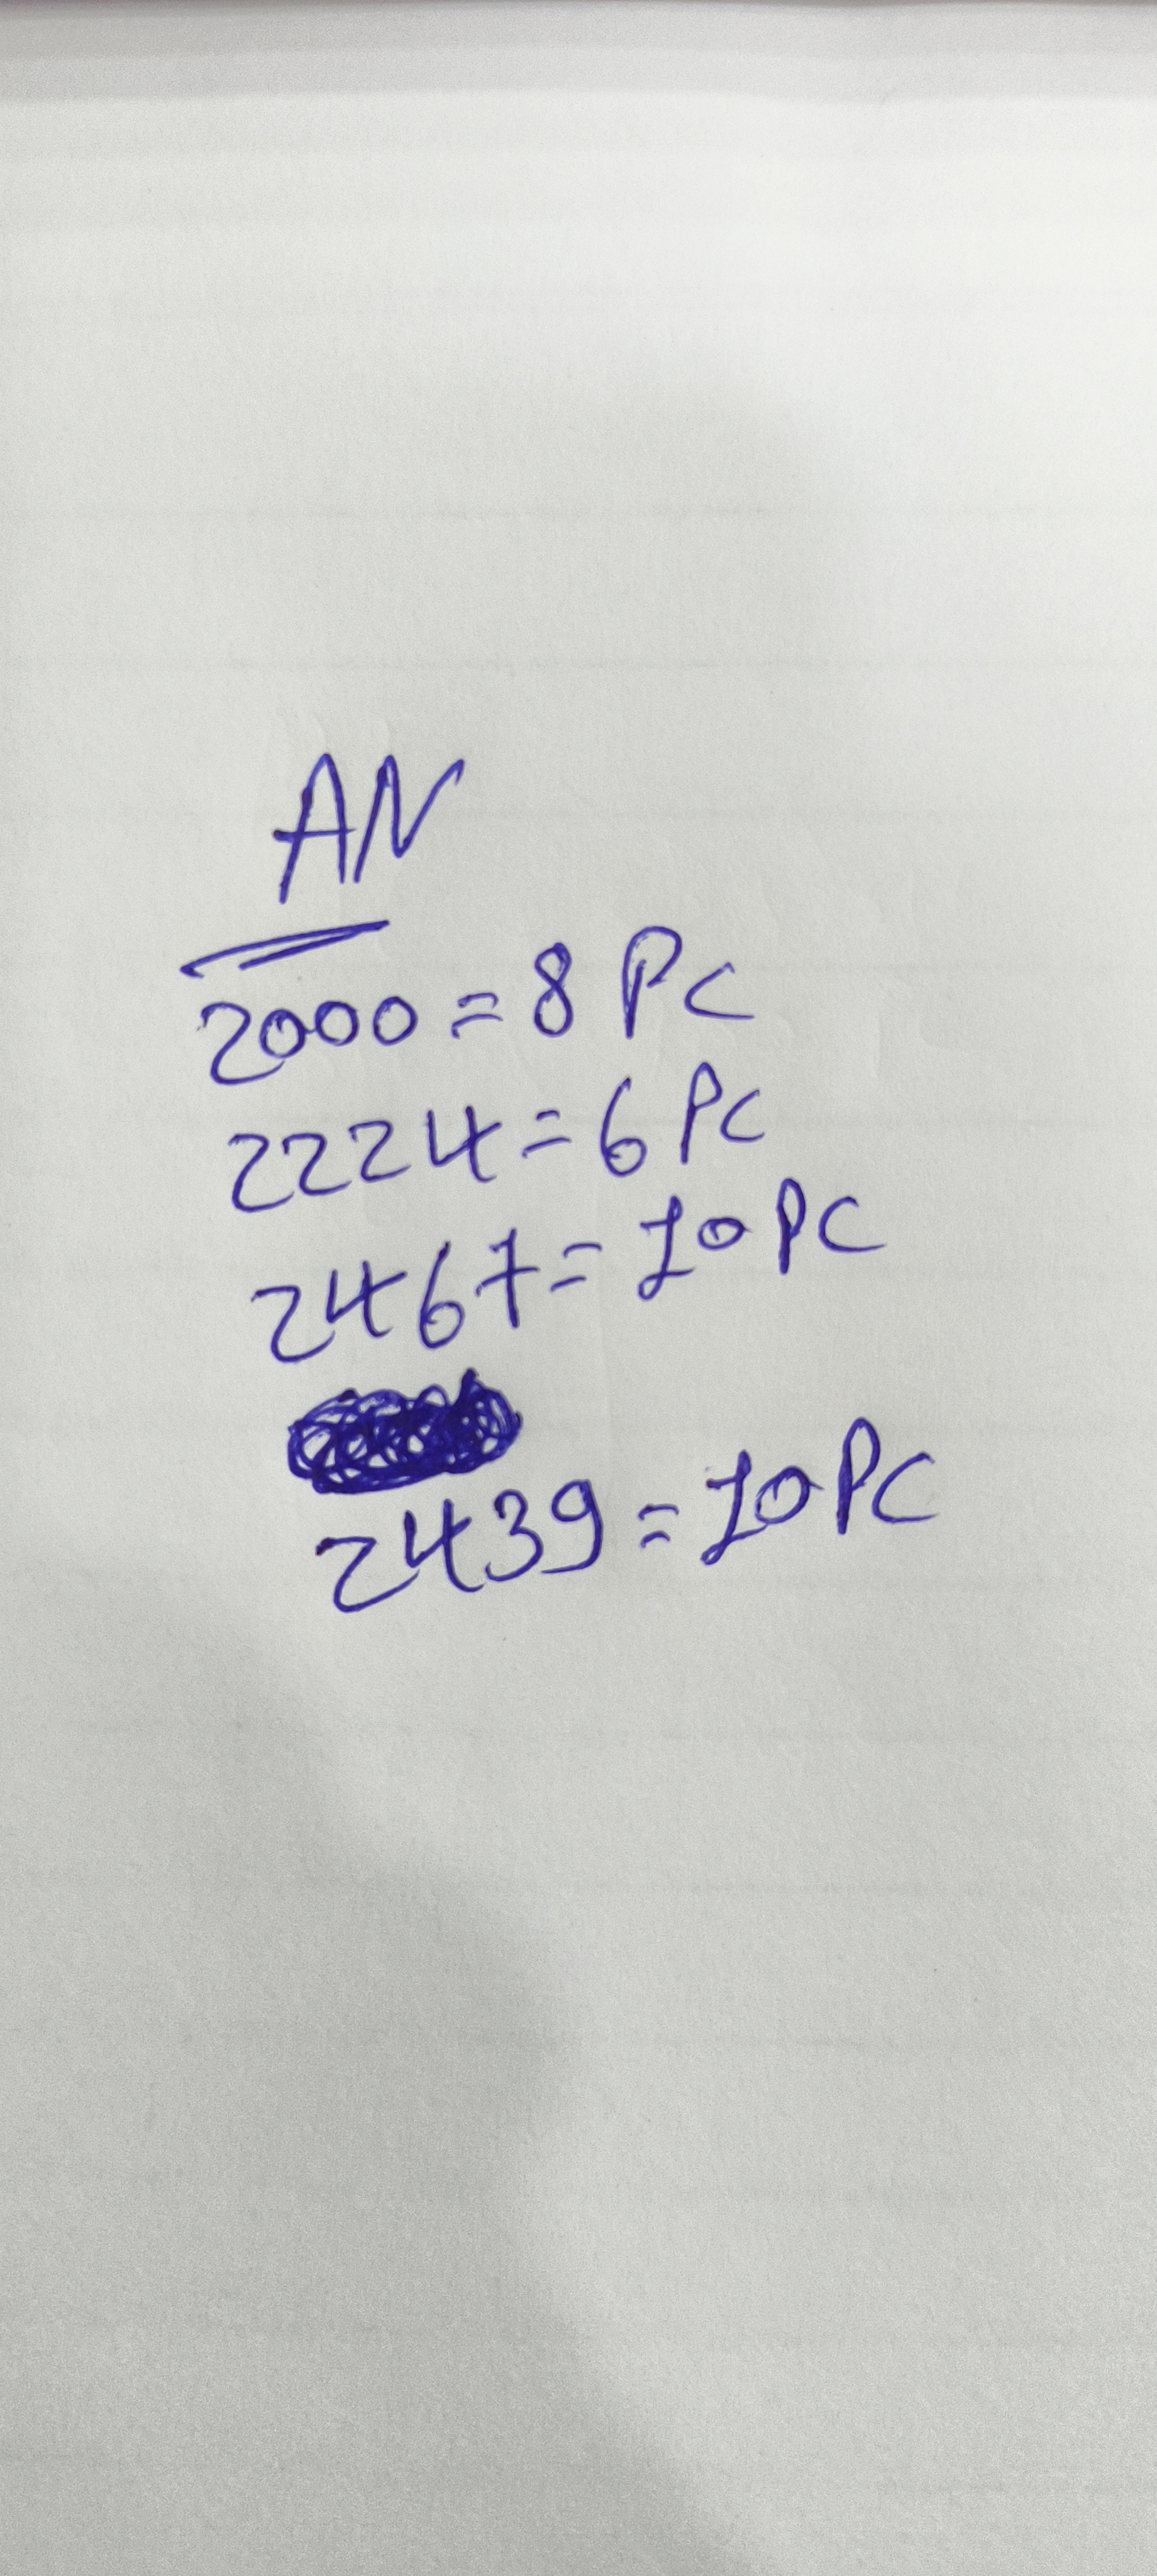 AN
2000 = 8 PC
2224 = 6 PC
2467 = 10 PC
2439 = 10 PC